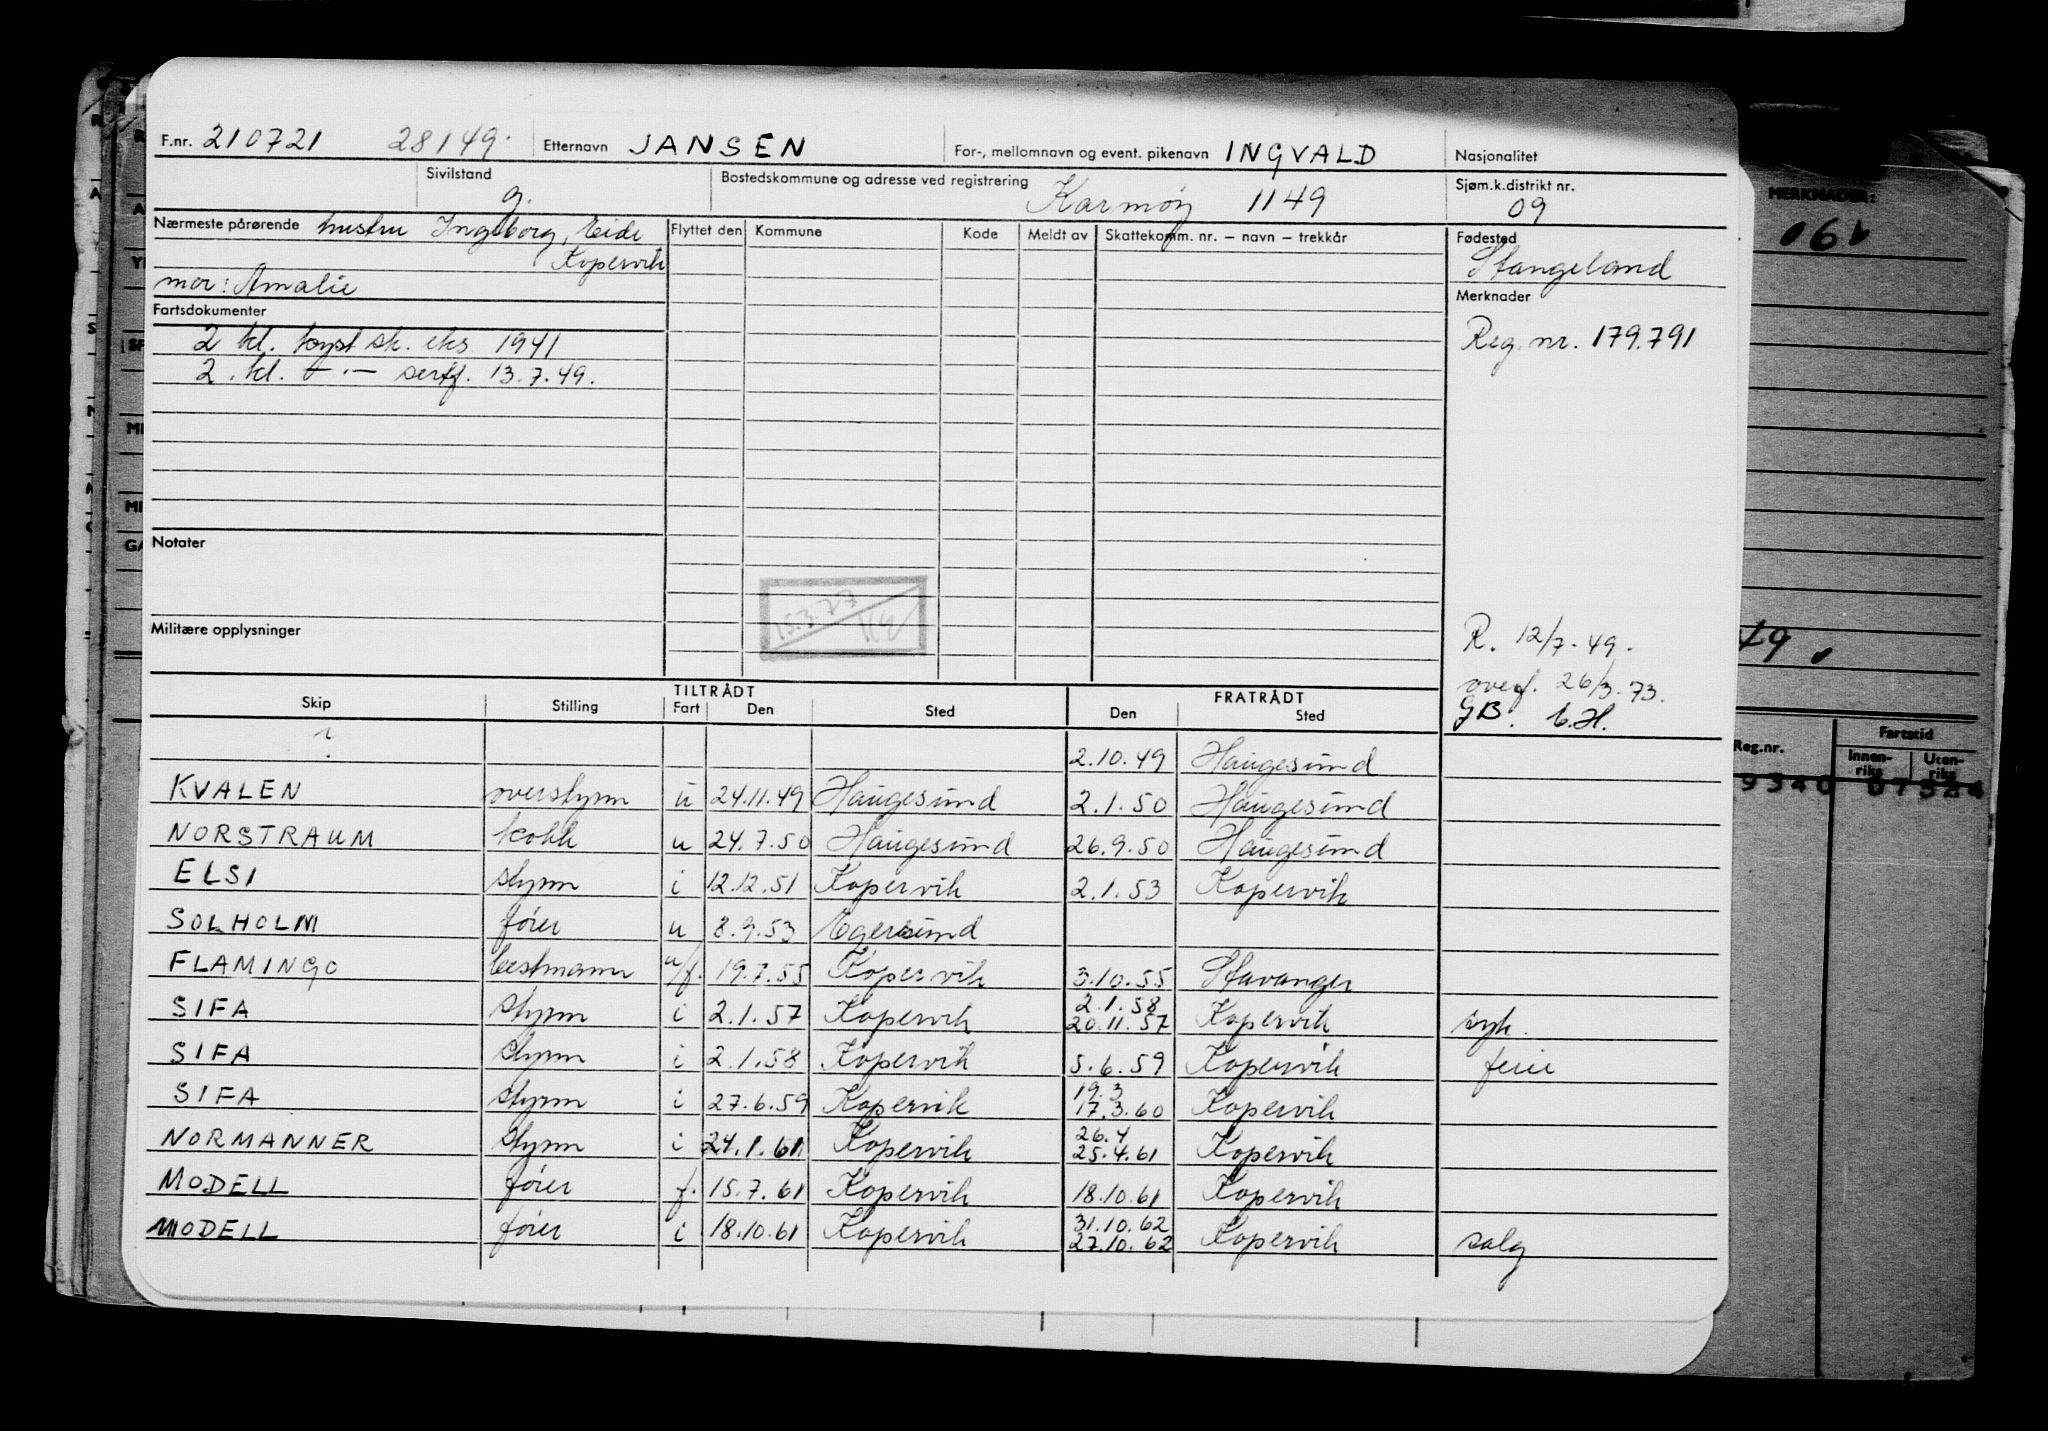 F.nr. 210721 28149. Etternavn JANSEN For-, mellomnavn og event. pikenavn INGVALD Nasjonalitet
Sivilstand g. Bostedskommune og adresse ved registrering Karmøy 1149 Sjøm.k.distrikt nr. 09
Nærmeste pårørende hustru Ingeborg, Eide Flyttet den Kommune Kode Meldt av Skattekomm. nr. – navn – trekkår Fødested
Kopervik Stangeland
mor: Amalie Merknader
Fartsdokumenter
2 kl. kyst sk. eks 1941 Reg. nr. 179.791
2. kl. – · – sertf. 13.7.49.
Notater
15.3.77
Militære opplysninger R. 12/7-49.
overf. 26/3.73.
GB.
TILTRÅDT FRATRÅDT
Skip Stilling Fart Den Sted Den Sted
? 2.10.49 Haugesund
KVALEN overstyrm u 24.11.49 Haugesund 2.1.50 Haugesund
NORSTRAUM kokk u 24.7.50 Haugesund 26.9.50 Haugesund
ELSI styrm i 12.12.51 Kopervik 2.1.53 Kopervik
SOLHOLM fører u 8.9.53 Egersund
FLAMINGO bestmann u/f. 19.7.55 Kopervik 3.10.55 Stavanger
SIFA styrm i 2.1.57 Kopervik 2.1.58 20.11.57 Kopervik syk.
SIFA styrm i 2.1.58 Kopervik 5.6.59 Kopervik ferie
SIFA styrm i 27.6.59 Kopervik 19.3 17.3.60 Kopervik
NORMANNER styrm i 24.1.61 Kopervik 26.4 25.4.61 Kopervik
MODELL fører f. 15.7.61 Kopervik 18.10.61 Kopervik
MODELL fører i 18.10.61 Kopervik 31.10.62 27.10.62 Kopervik salg
MERKNADER:
Reg.nr. Fartstid
Innen-riks Uten-riks